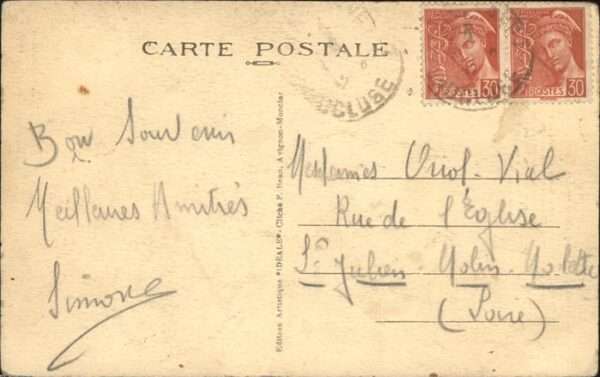 CARTE POSTALE
VAUCLUSE
30 POSTES
POSTES 30
Bon Souvenir
Meilleures Amitiés
Simone
Editions Artistiques "IDEALE"- Cliché F. Beau, Avignon-Monclar
Mesdames Oriol-Vial
Rue de l'Eglise
St Julien-Molin-Molette
(Loire)